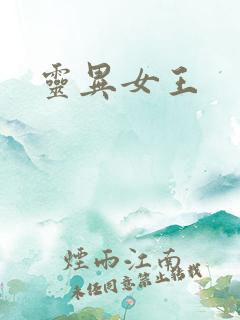 靈異女王
煙雨江南
未經同意禁止轉載